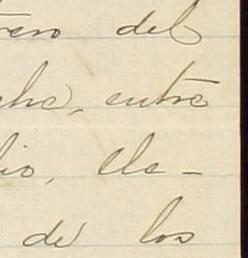 rero del
che, entre
lio, ele-
de los